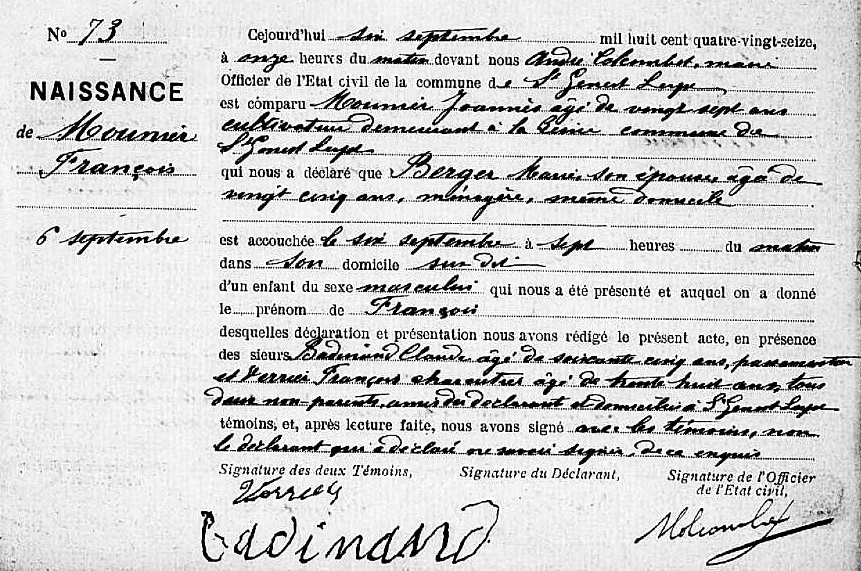 No 73
NAISSANCE
de Mounier
François
6 septembre
Cejourd'hui six septembre mil huit cent quatre-vingt-seize,
à onze heures du matin devant nous André Colombet, maire
Officier de l'Etat civil de la commune de St Genest Lerpt
est comparu Mounier Joannès âgé de vingt sept ans
cultivateur demeurant à la commune de
St Genest Lerpt
qui nous a déclaré que Berger Marie, son épouse, âgée de
vingt cinq ans, ménagère, même domicile
est accouchée le six septembre à sept heures du matin
dans son domicile sus dit
d'un enfant du sexe masculin qui nous a été présenté et auquel on a donné
le prénom de François
desquelles déclaration et présentation nous avons rédigé le présent acte, en présence
des sieurs Badinand Claude âgé de soixante cinq ans, passementier
et Verrier François charpentier âgé de trente huit ans, tous
deux non parents, amis du déclarant et domiciliés à St Genest Lerpt
témoins, et, après lecture faite, nous avons signé avec les témoins, non
le déclarant qui a déclaré ne savoir signer, de ce enquis
Signature des deux Témoins, Signature du Déclarant, Signature de l'Officier
de l'Etat civil,
Verrier
Badinand